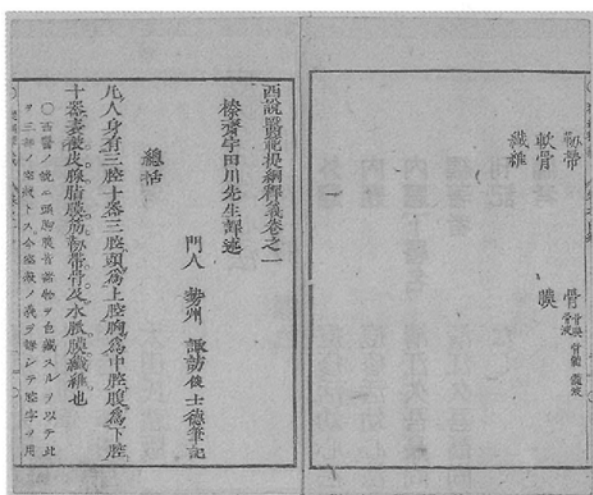 靱帶　骨　骨膜　骨髓　髓液　骨液
軟骨　膜
纖維
西說醫範提綱釋義卷之一
榛齋宇田川先生譯述
門人　勢州　諏訪俊士德筆記
總括
凡人身有三腔十器三腔頭爲上腔胸爲中腔腹爲下腔
十器表被皮腺脂膜筋靱帶骨及水脈膜纖維也
○西醫ノ說ニ頭胸腹皆諸物ヲ包藏スルヲ以テ此
ヲ三部ノ空竅トス今空竅ノ義ヲ譯シテ腔字ヲ用